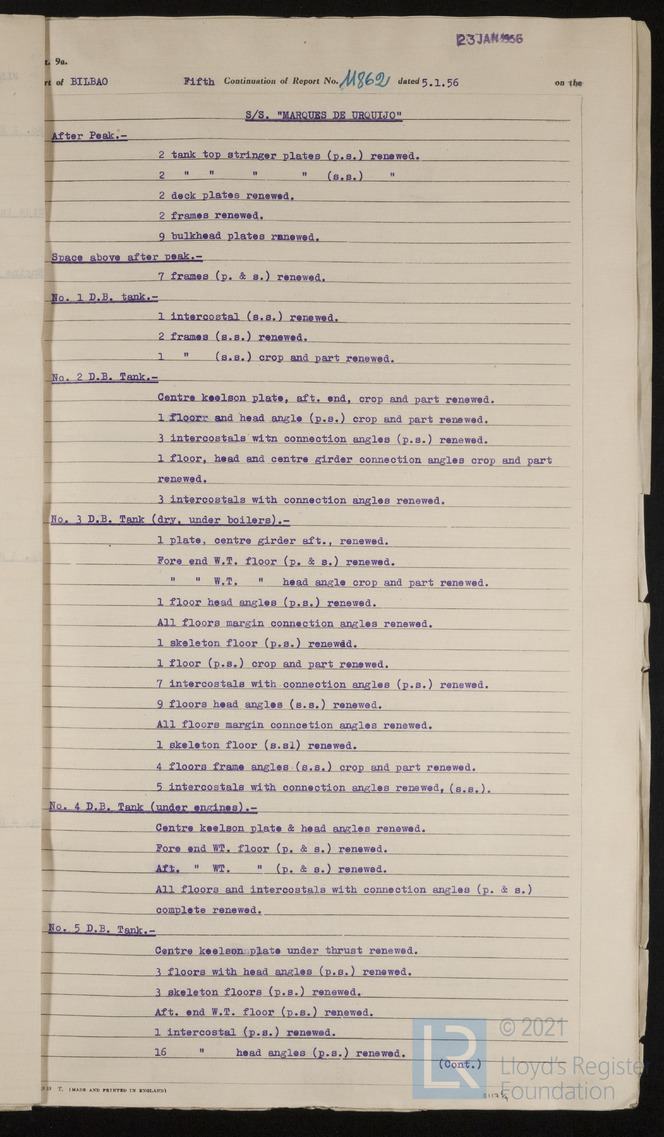 23 JAN 1956
t. 9a.
rt of BILBAO Fifth Continuation of Report No. 11862 dated 5.1.56 on the
S/S. "MARQUES DE URQUIJO"
After Peak.-
2 tank top stringer plates (p.s.) renewed.
2 " " " " (s.s.) "
2 deck plates renewed.
2 frames renewed.
9 bulkhead plates renewed.
Space above after peak.-
7 frames (p. & s.) renewed.
No. 1 D.B. tank.-
1 intercostal (s.s.) renewed.
2 frames (s.s.) renewed.
1 " (s.s.) crop and part renewed.
No. 2 D.B. Tank.-
Centre keelson plate, aft. end, crop and part renewed.
1 floorr and head angle (p.s.) crop and part renewed.
3 intercostals witn connection angles (p.s.) renewed.
1 floor, head and centre girder connection angles crop and part
renewed.
3 intercostals with connection angles renewed.
No. 3 D.B. Tank (dry, under boilers).-
1 plate, centre girder aft., renewed.
Fore end W.T. floor (p. & s.) renewed.
" " W.T. " head angle crop and part renewed.
1 floor head angles (p.s.) renewed.
All floors margin connection angles renewed.
1 skeleton floor (p.s.) renewed.
1 floor (p.s.) crop and part renewed.
7 intercostals with connection angles (p.s.) renewed.
9 floors head angles (s.s.) renewed.
All floors margin conncetion angles renewed.
1 skeleton floor (s.sl) renewed.
4 floors frame angles (s.s.) crop and part renewed.
5 intercostals with connection angles renewed, (s.s.).
No. 4 D.B. Tank (under engines).-
Centre keelson plate & head angles renewed.
Fore end WT. floor (p. & s.) renewed.
Aft. " WT. " (p. & s.) renewed.
All floors and intercostals with connection angles (p. & s.)
complete renewed.
No. 5 D.B. Tank.-
Centre keelson plate under thrust renewed.
3 floors with head angles (p.s.) renewed.
3 skeleton floors (p.s.) renewed.
Aft. end W.T. floor (p.s.) renewed.
1 intercostal (p.s.) renewed.
16 " head angles (p.s.) renewed.
(Cont.)
T. (MADE AND PRINTED IN ENGLAND)
LR
© 2021
Lloyd's Register
Foundation